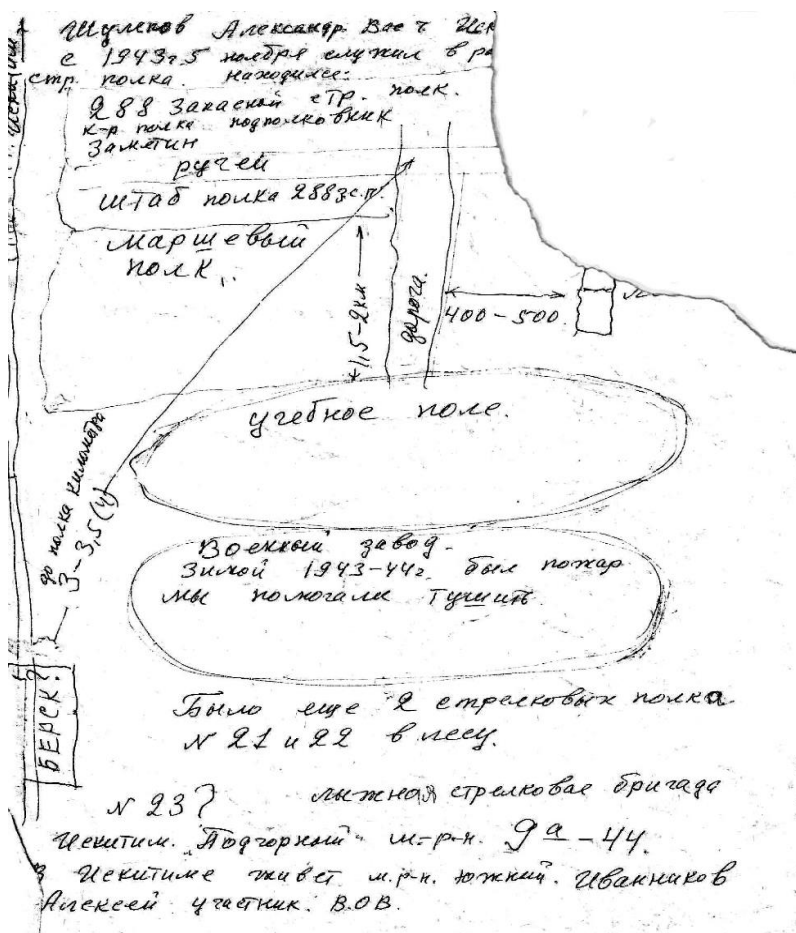 Шулепов Александр Вас ч Иск
с 1943г 5 ноября служил в
стр. полка. находился:
288 Запасной стр. полк.
к-р полка подполковник
Заметин
ручей
штаб полка 288 з.с.п.
маршевый
полк
1,5-2 км
дорога.
400-500
учебное поле.
до полка километра
3-3,5 (4)
Военный завод.
Зимой 1943-44г. был пожар
мы помогали тушить
БЕРСК?
Было еще 2 стрелковых полка
N 21 и 22 в лесу.
N 23? лыжная стрелковая бригада
Искитим. Подгорный м-р-н. 9а-44.
В Искитиме живет м.р-н. южный. Иванников
Алексей участник. В.О.В.